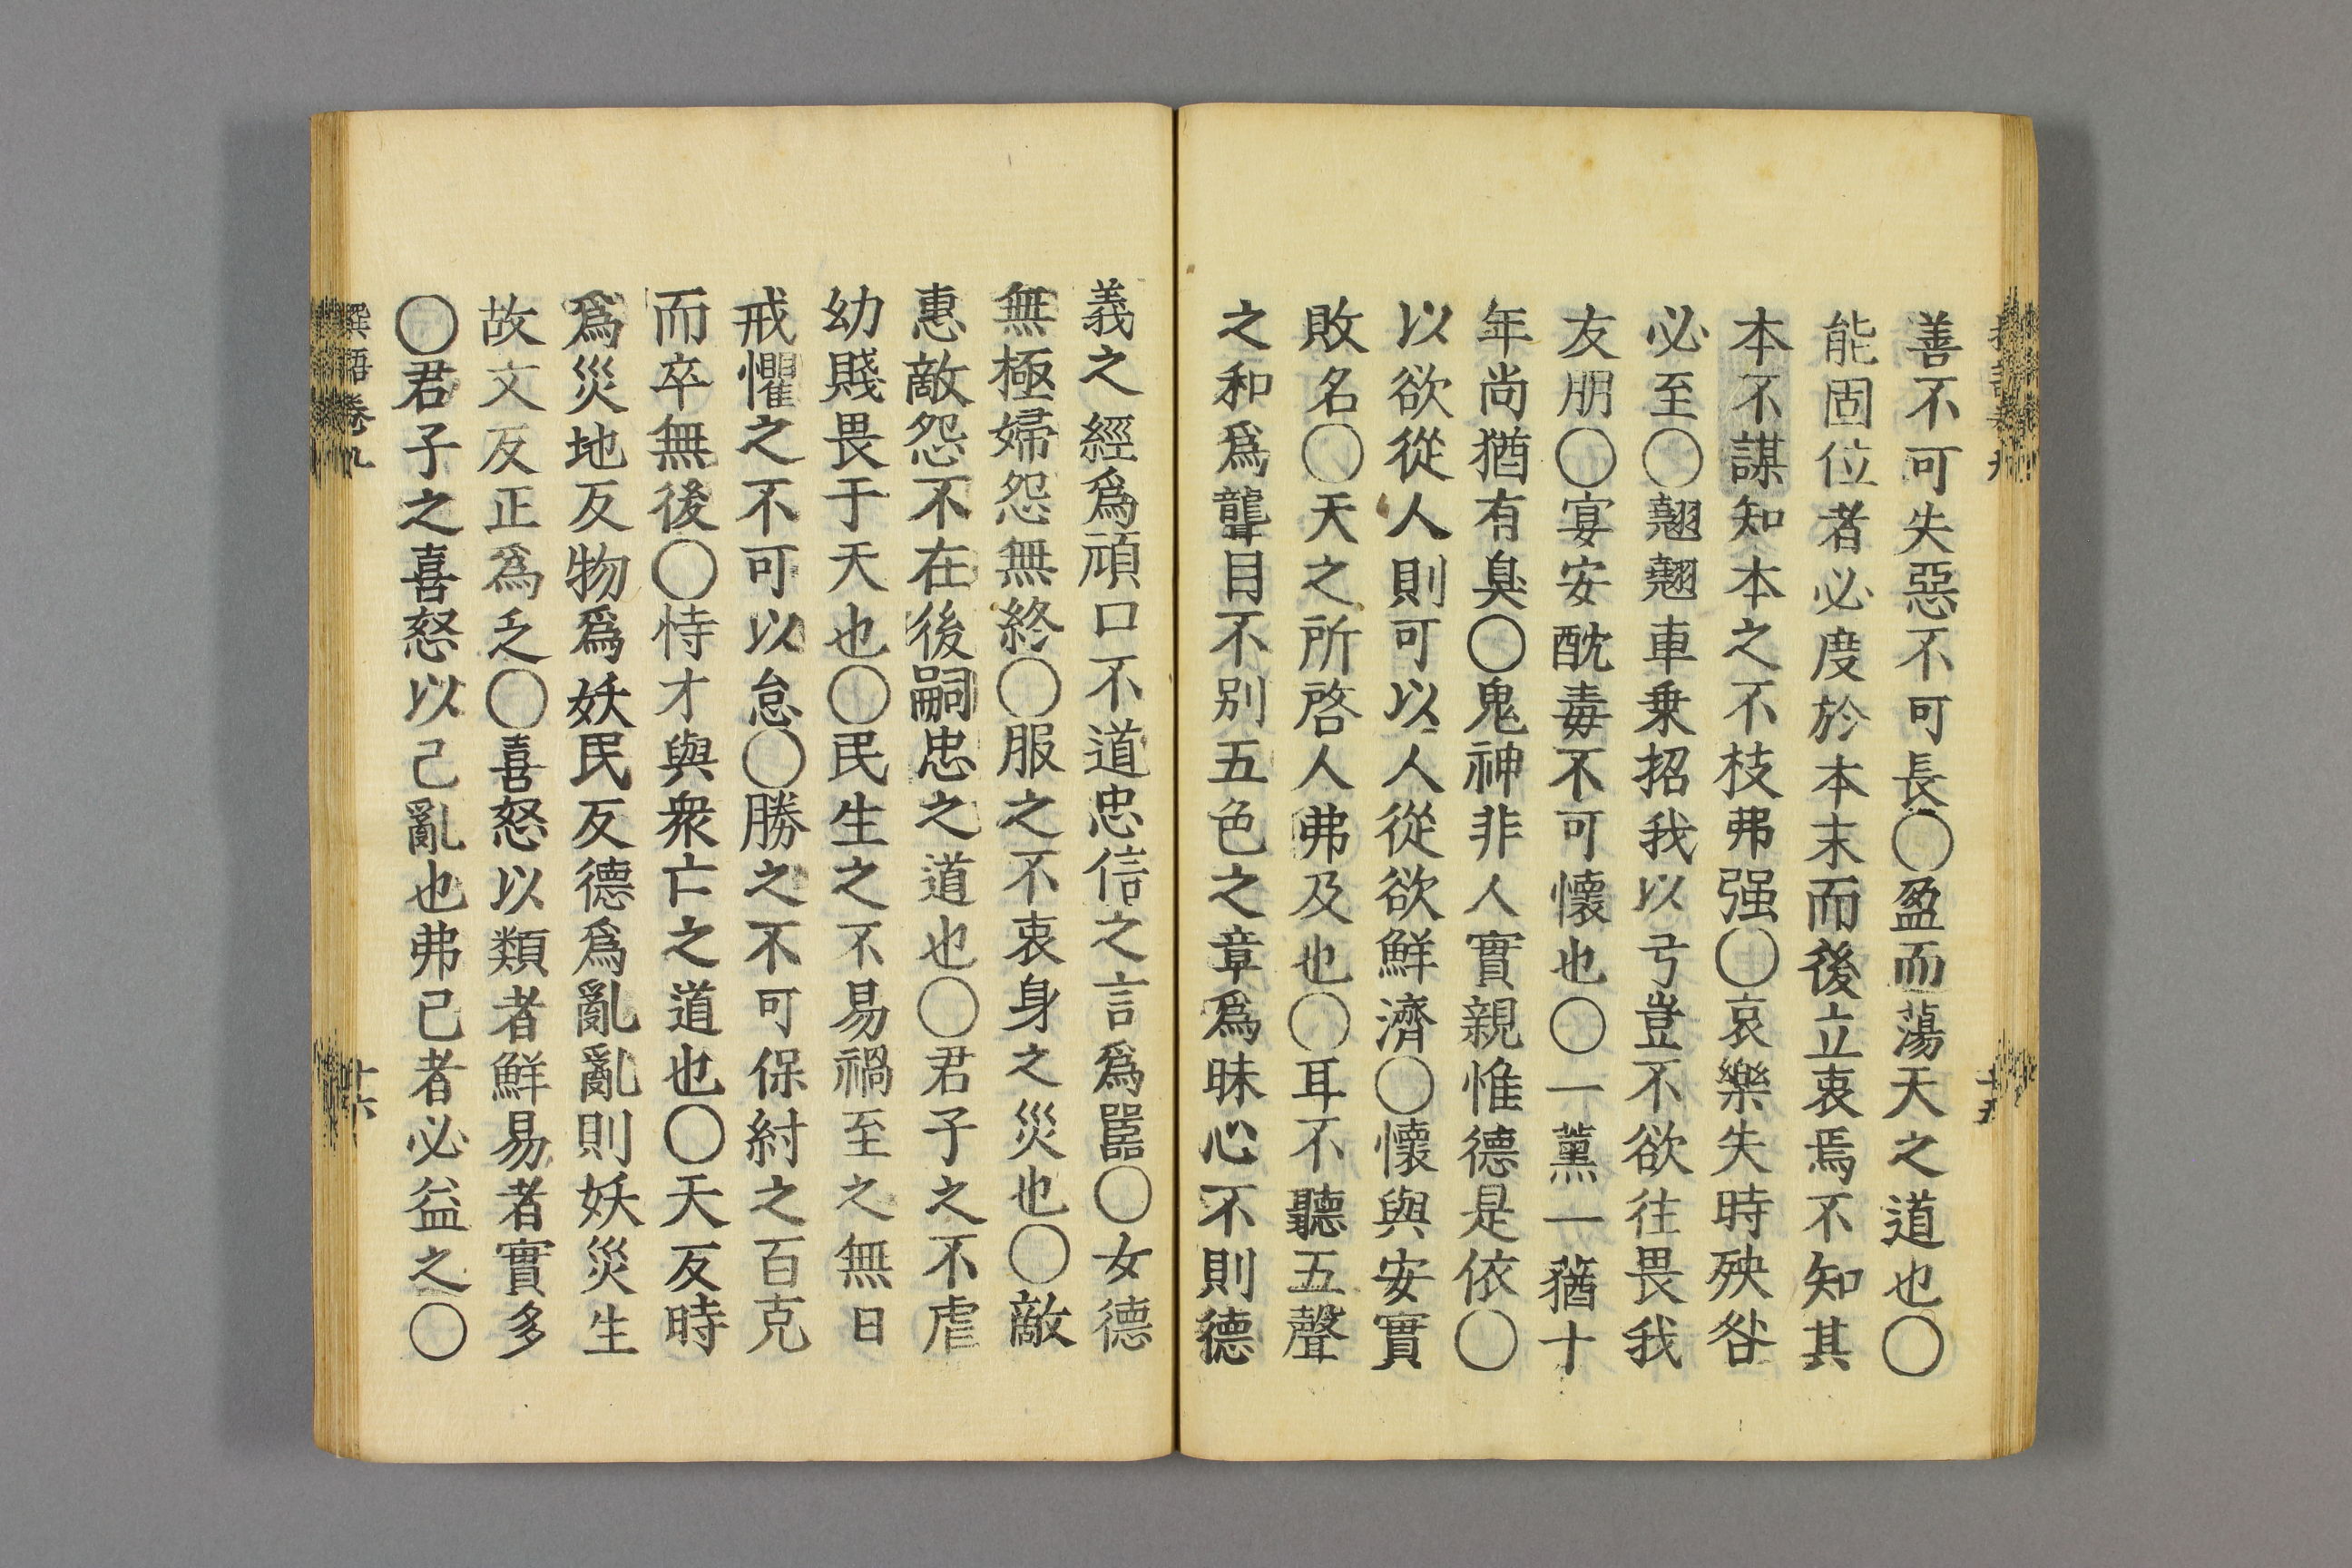 善不可失惡不可長〇盈而蕩天之道也〇
能固位者必度於本末而後立衷焉不知其
本不謀知本之不枝弗强〇哀樂失時殃咎
必至〇翹翹車乗招我以弓豈不欲往畏我
友朋〇宴安酖毒不可懷也〇一薫一蕕十
年尚猶有臭〇鬼神非人實親惟德是依〇
以欲從人則可以人從欲鮮濟〇懷與安實
敗名〇天之所啓人弗及也〇耳不聽五聲
之和爲聾目不别五色之章爲昧心不則德
義之經爲頑口不道忠信之言爲嚚〇女德
無極婦怨無終〇服之不衷身之災也〇敵
惠敵怨不在後嗣忠之道也〇君子之不虐
幼賤畏于天也〇民生之不易禍至之無日
戒懼之不可以怠〇勝之不可保紂之百克
而卒無後〇恃才與衆亡之道也〇天反時
爲災地反物爲妖民反德爲亂亂則妖災生
故文反正爲乏〇喜怒以類者鮮易者實多
〇君子之喜怒以己亂也弗已者必益之〇
語卷九
十六